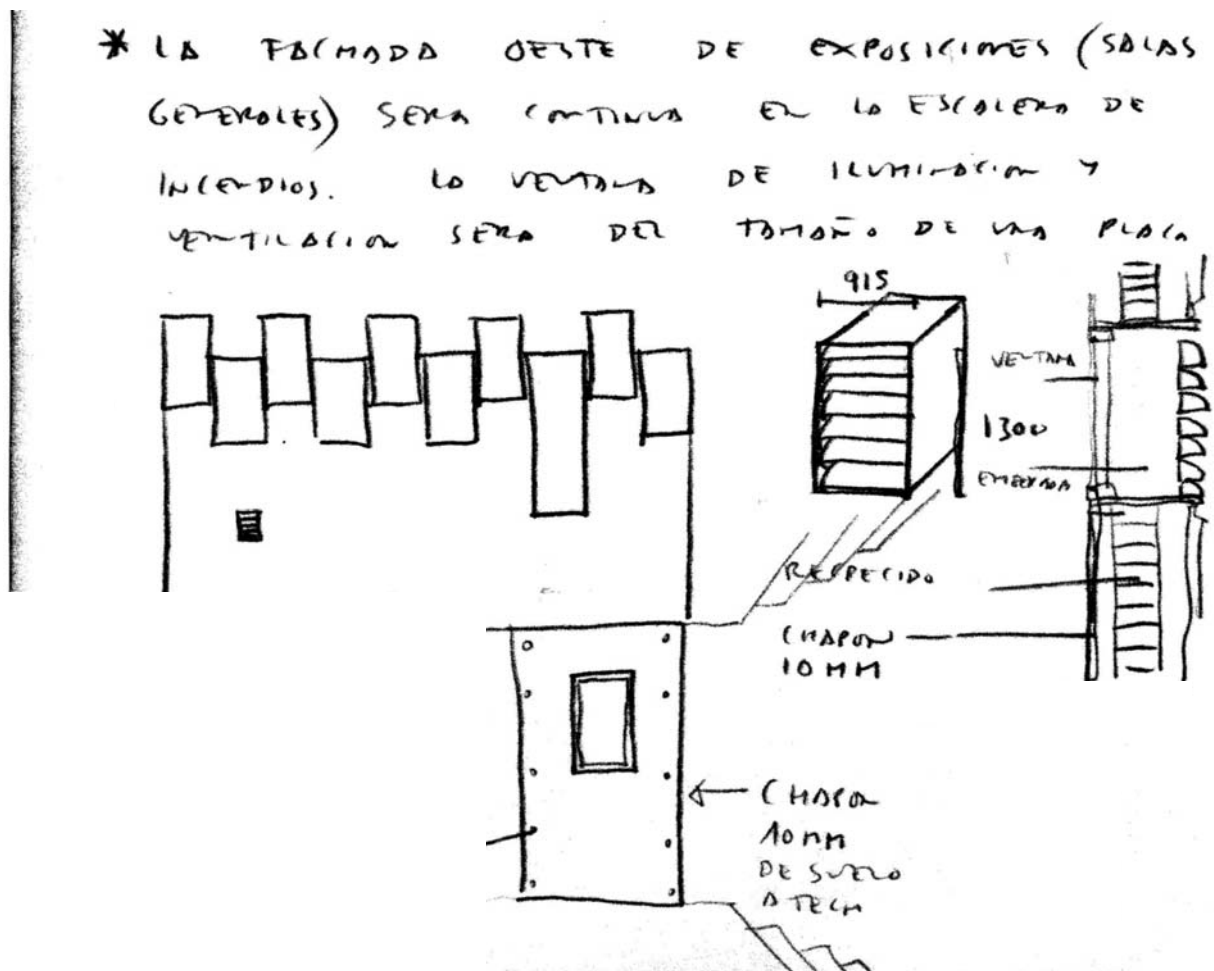 * LA FACHADA OESTE DE EXPOSICIONES (SALAS
GENERALES) SERA CONTINUA EN LA ESCALERA DE
INCENDIOS. LA VENTANA DE ILUMINACION Y
VENTILACION SERA DEL TAMAÑO DE UNA PLACA
915
VENTANA
1300
RECRECIDO
CHAPON
10 MM
CHAPON
10 MM
DE SUELO
A TECH